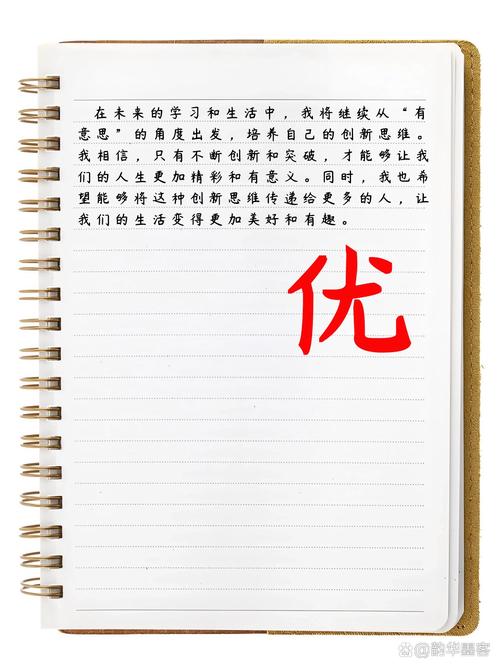 在未来的学习和生活中，我将继续从“有
意思”的角度出发，培养自己的创新思维。
我相信，只有不断创新和突破，才能够让我
们的人生更加精彩和有意义。同时，我也希
望能够将这种创新思维传递给更多的人，让
我们的生活变得更加美好和有趣。
优
@韵华墨客